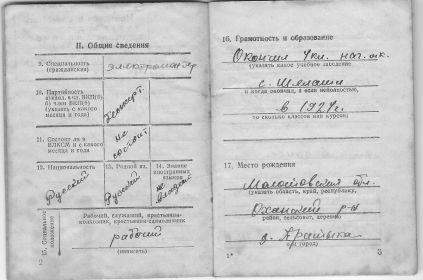 II. Общие сведения
9. Специальность
(гражданская)
электромонтер
10. Партийность
б) член ВКП(б)
(указать с какого
месяца и года
11. Состоит ли в
ВЛКСМ и с какого
месяца и года
не
состоит
12. Национальность
Русский
13. Родной яз.
Русский
14. Знание
иностранных
языков
не
владеет
15. Социальное
положение
Рабочий, служащий, крестьянин-
колхозник, крестьянин-единоличник
рабочий
(вписать)
2
16. Грамотность и образование
Окончил 4 кл. нач. шк.
(указать какое учебное заведение
с.
и когда окончил, а если неполностью,
в 1924 г.
то сколько классов или курсов)
17. Место рождения
Молотовская обл.
(указать область, край, республику,
Оханский р-н
район, сельсовет, деревню
д.
или город)
1*
3